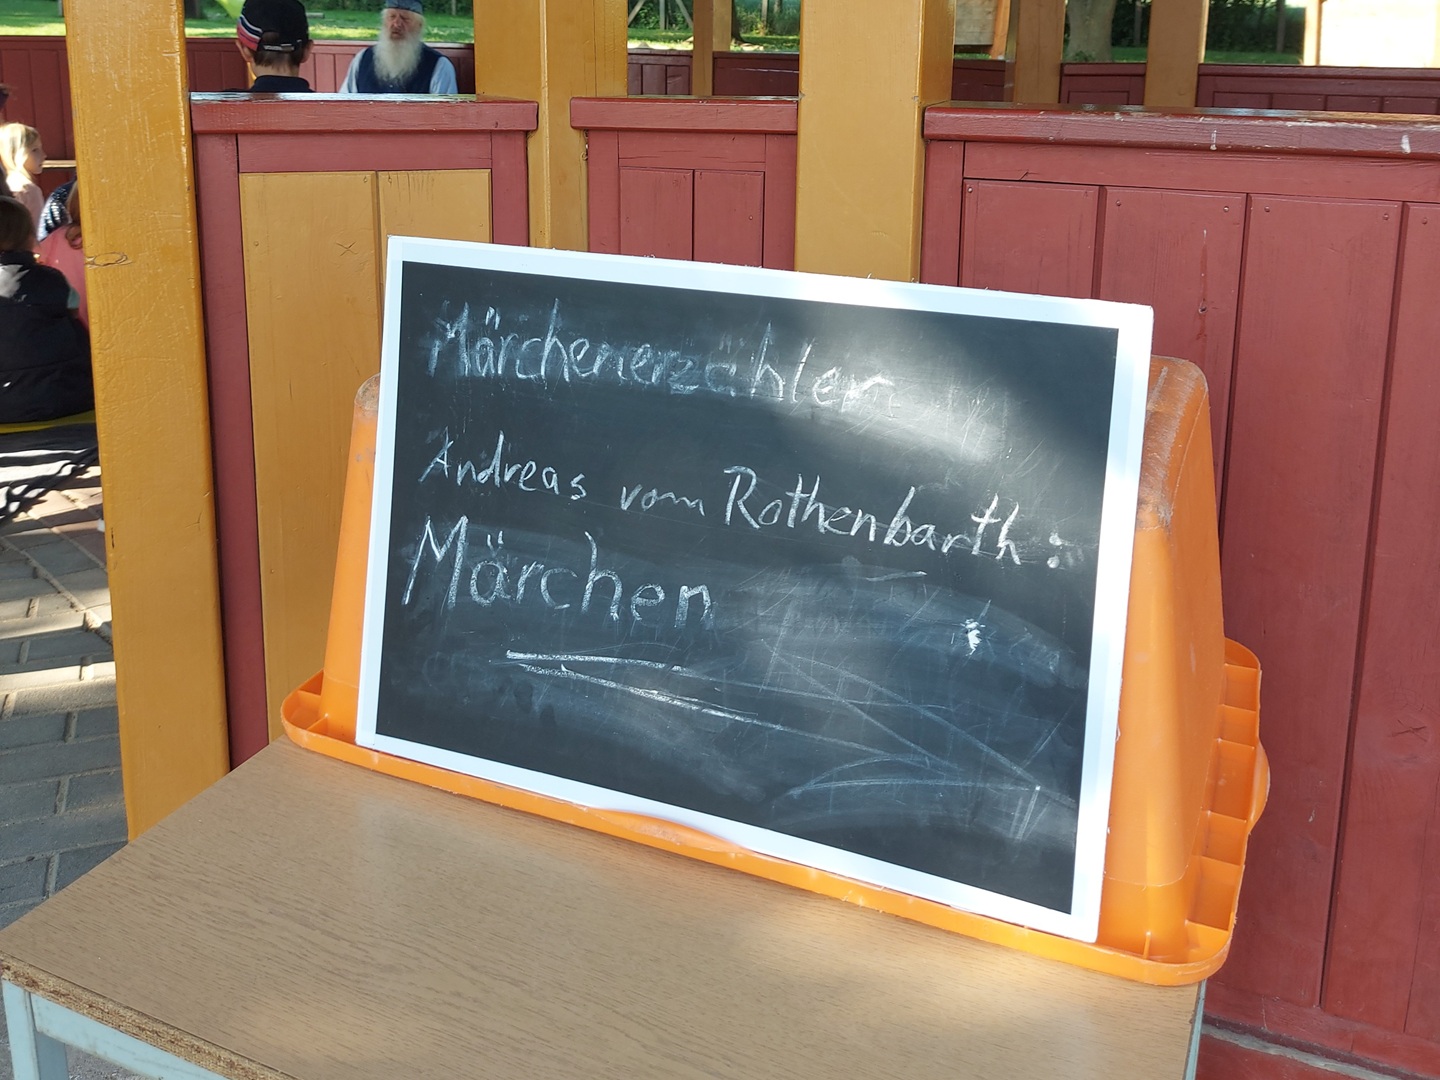 Märchenerzähler
Andreas vom Rothenbarth:
Märchen